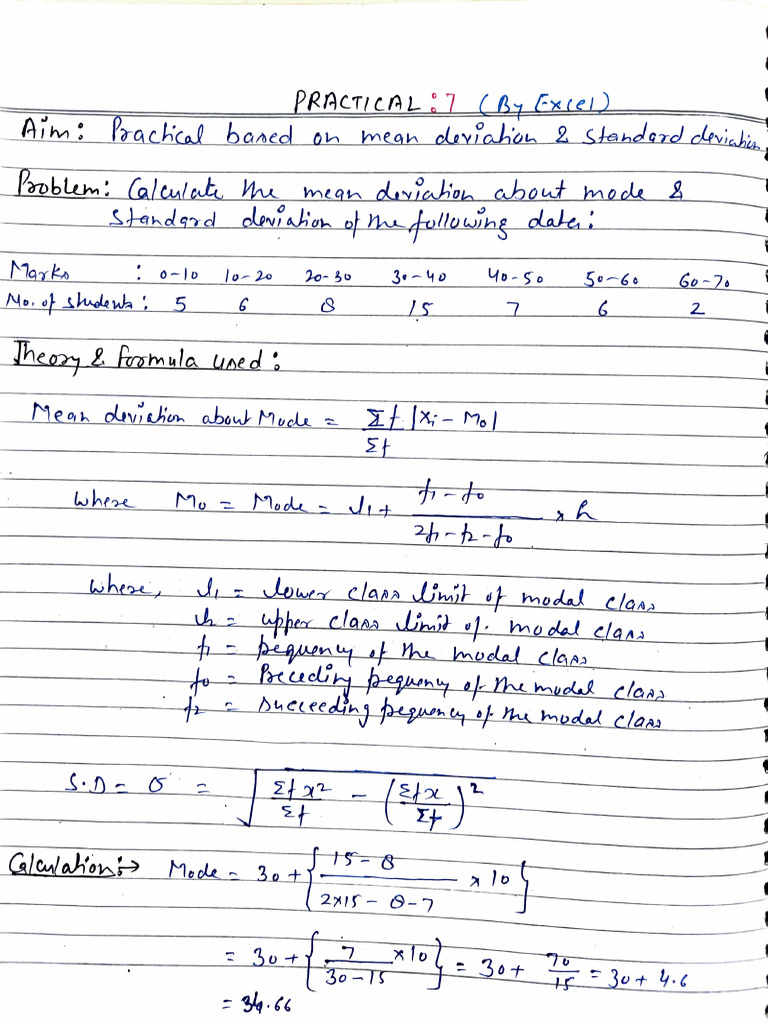 PRACTICAL: 7 (By Excel)
Aim: Practical based on mean deviation & standard deviation
Problem: Calculate the mean deviation about mode &
standard deviation of the following data:
Marks : 0-10 10-20 20-30 30-40 40-50 50-60 60-70
No. of students: 5 6 8 15 7 6 2
Theory & formula used:
Mean deviation about Mode = Σf |xi - Mo| / Σf
where Mo = Mode = l1 + (f1 - f0) / (2f1 - f2 - f0) × h
where, l1 = lower class limit of modal class
l2 = upper class limit of modal class
f1 = frequency of the modal class
f0 = Preceding frequency of the modal class
f2 = succeeding frequency of the modal class
S.D = σ = √(Σfx²/Σf - (Σfx/Σf)²)
Calculation:→ Mode = 30 + {(15 - 8) / (2×15 - 8 - 7) × 10}
= 30 + {7 / (30 - 15) × 10} = 30 + 70/15 = 30 + 4.6
= 34.66